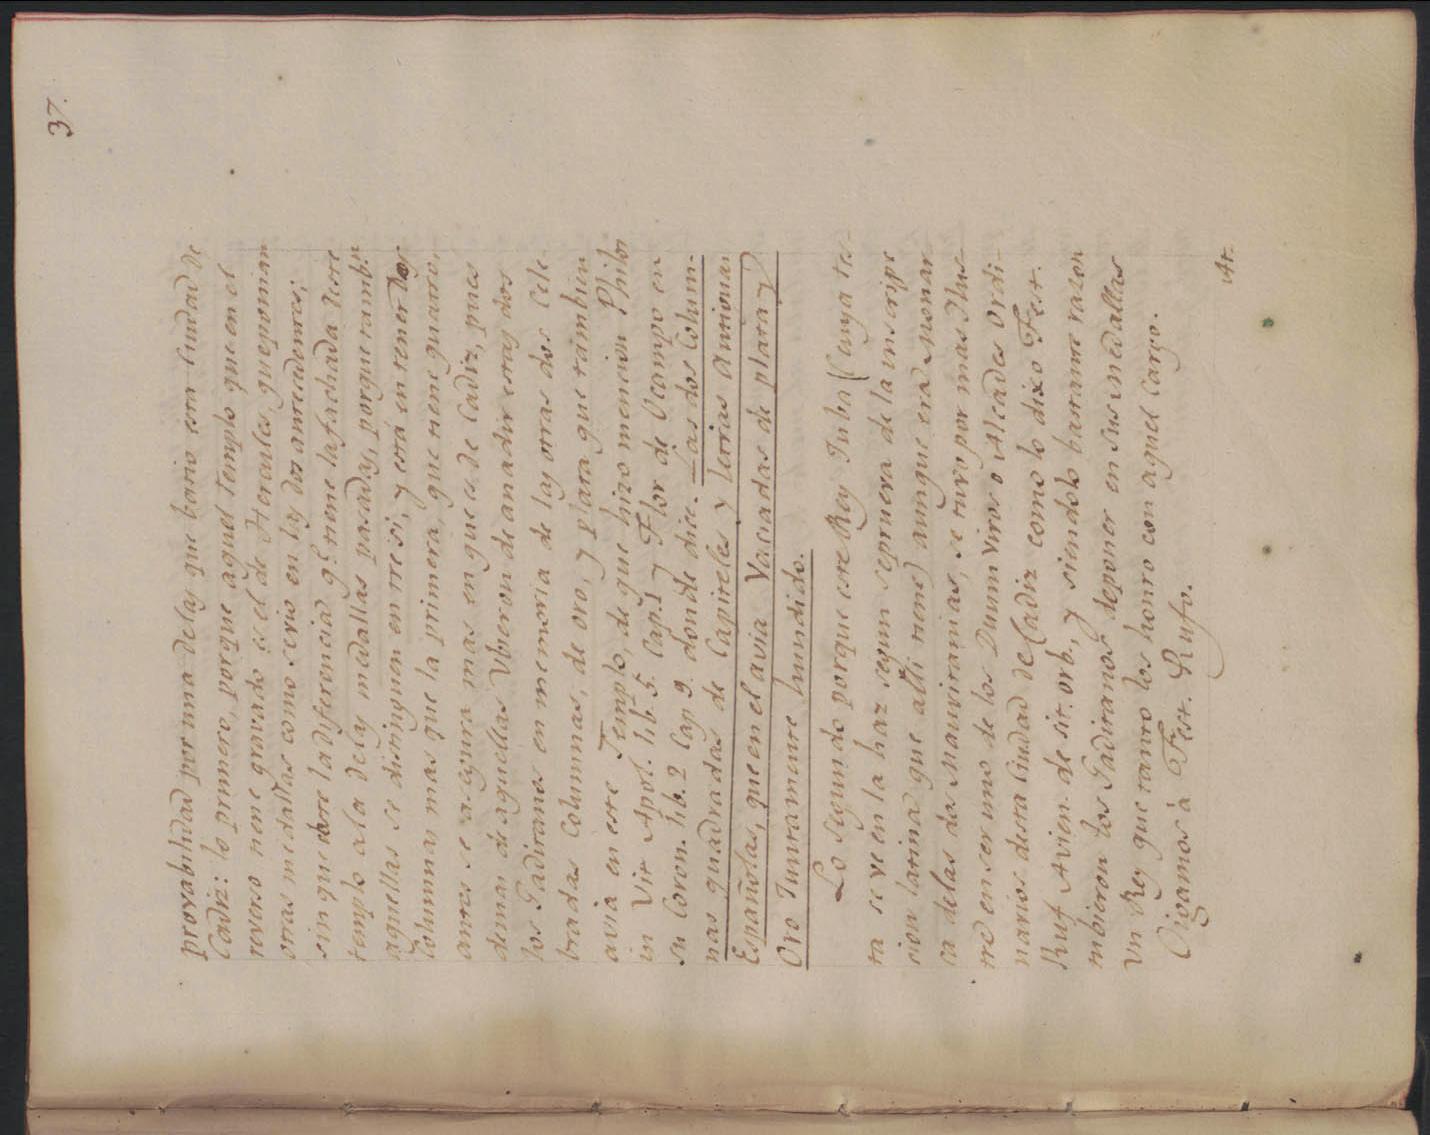 37.
provabilidad por una de las que batio esta Ciudad de
Cadiz: lo primero, porque aquel templo que en el
reverso tiene gravado es el de Hercules, que ponian
otras medallas como se vio en las dos antecedentes;
sin que obste la diferencia q.e tiene la fachada deste
templo a la de las medallas pasadas, porque tamb.n
aquellas se distinguen entre si, y está en tener dos
Columnas mas que la primera, que tiene quatro,
antes se asegura mas en que es de Cadiz, pues
demas de aquellas Vbieron de anadir estas dos
los Gaditanos en memoria de las otras dos Cele-
bradas Columnas, de oro, y plata que tambien
avia en este Templo, de que hizo mencion Philos
in Vit Apol. lib. 5. Cap. 1 y Flor de Ocampo en
su Coron. lib. 2 Cap 9. donde dice. Las dos Colum-
nas quadradas de Capiteles y letras antiguas
Españolas, que en el avia Vaciadas de plata y
Oro Juntamente hundido.
Lo segundo porque este Rey Juba (cuya tes-
ta se ve en la haz segun se prueva de la inscripc
cion latina que alli tiene) aunque era Monar-
ca de las dos Mauritanias, se tuvo por mas Ilus-
tre en ser uno de los Duumviros o Alcades Ordi-
narios desta Ciudad de Cadiz como lo dixo Fest.
Ruf Avien. de sit. orb., y siendolo bastante razon
tubieron los Gaditanos deponer en sus medallas
Un Rey que tanto los honro con aquel Cargo.
Oigamos à Fest. Rufo.
At.